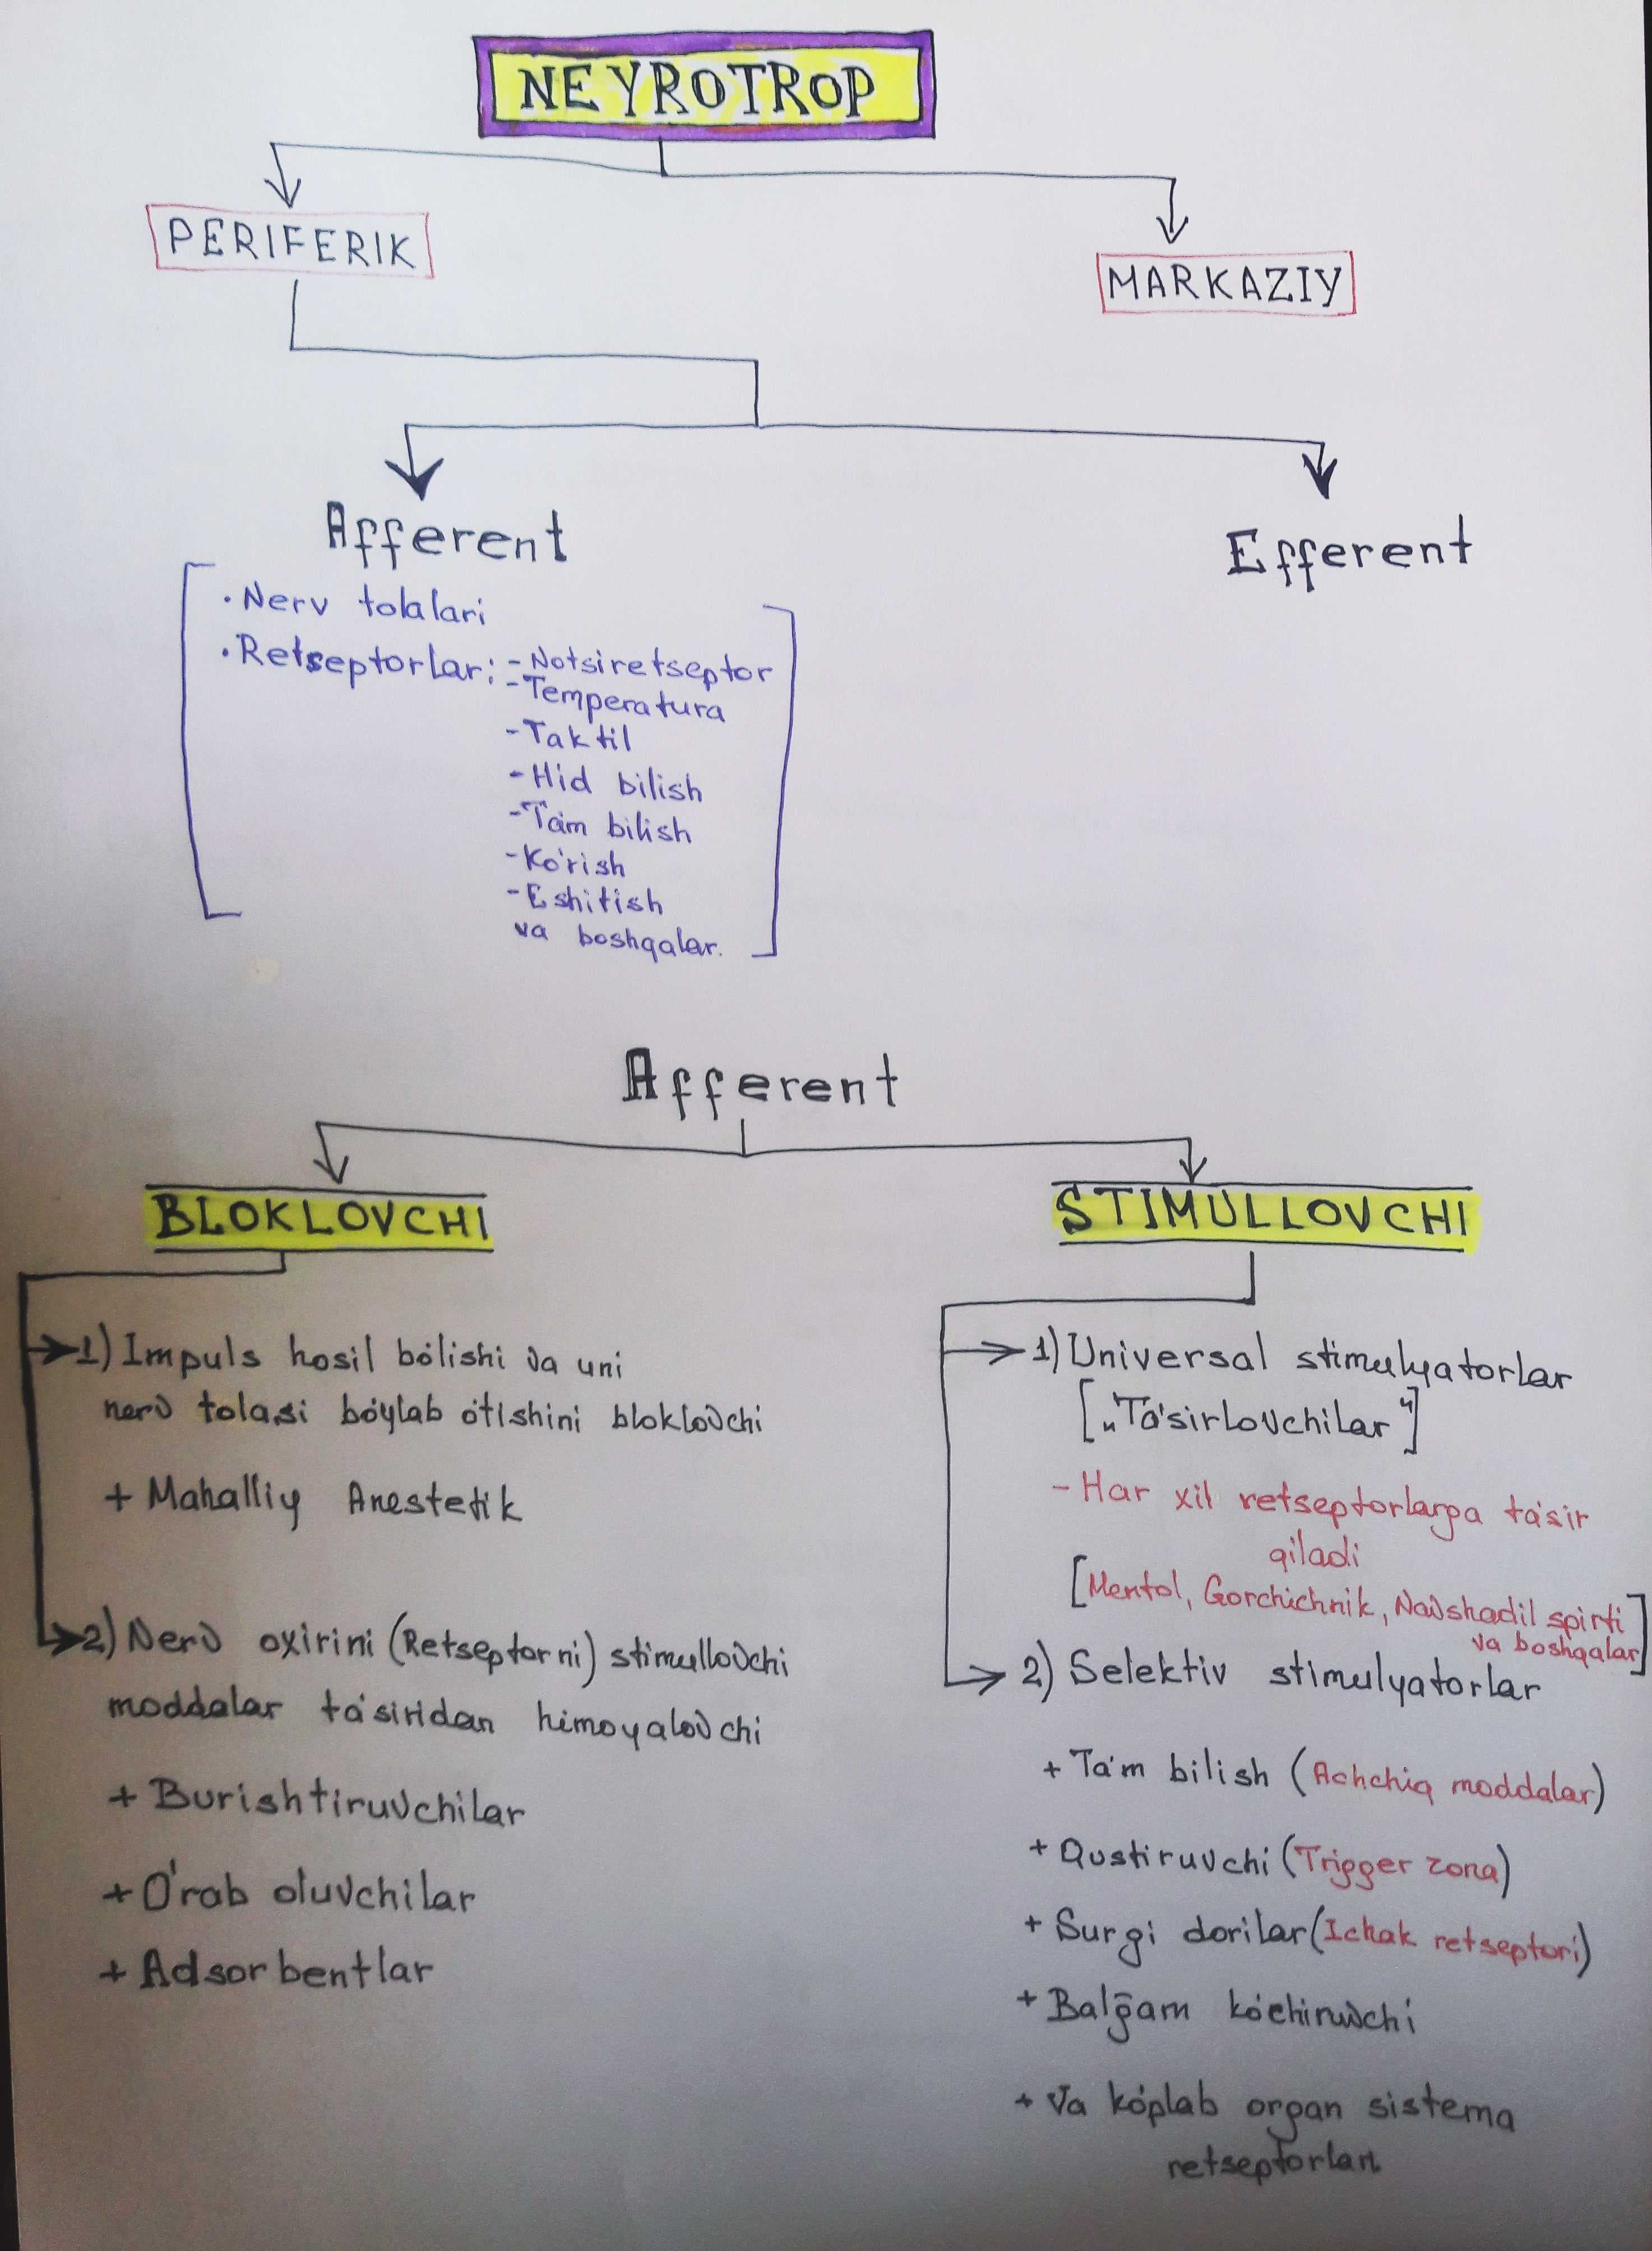 NEYROTROP
PERIFERIK
MARKAZIY
Afferent
Efferent
• Nerv tolalari
• Retseptorlar: - Notsiretseptor
- Temperatura
- Taktil
- Hid bilish
- Ta'm bilish
- Ko'rish
- Eshitish
va boshqalar.
Afferent
BLOKLOVCHI
1) Impuls hosil bo'lishi va uni
nerv tolasi bo'ylab o'tishini bloklovchi
+ Mahalliy Anestetik
2) Nerv oxirini (Retseptorni) stimullovchi
moddalar ta'siridan himoyalovchi
+ Burishtiruvchilar
+ O'rab oluvchilar
+ Adsorbentlar
STIMULLOVCHI
1) Universal stimulyatorlar
[„Ta'sirlovchilar"]
- Har xil retseptorlarga ta'sir
qiladi
[Mentol, Gorchichnik, Navshadil spirti
va boshqalar]
2) Selektiv stimulyatorlar
+ Ta'm bilish (Achchiq moddalar)
+ Qustiruvchi (Trigger zona)
+ Surgi dorilar (Ichak retseptori)
+ Balg̃am ko'chiruvchi
+ Va ko'plab organ sistema
retseptorlari